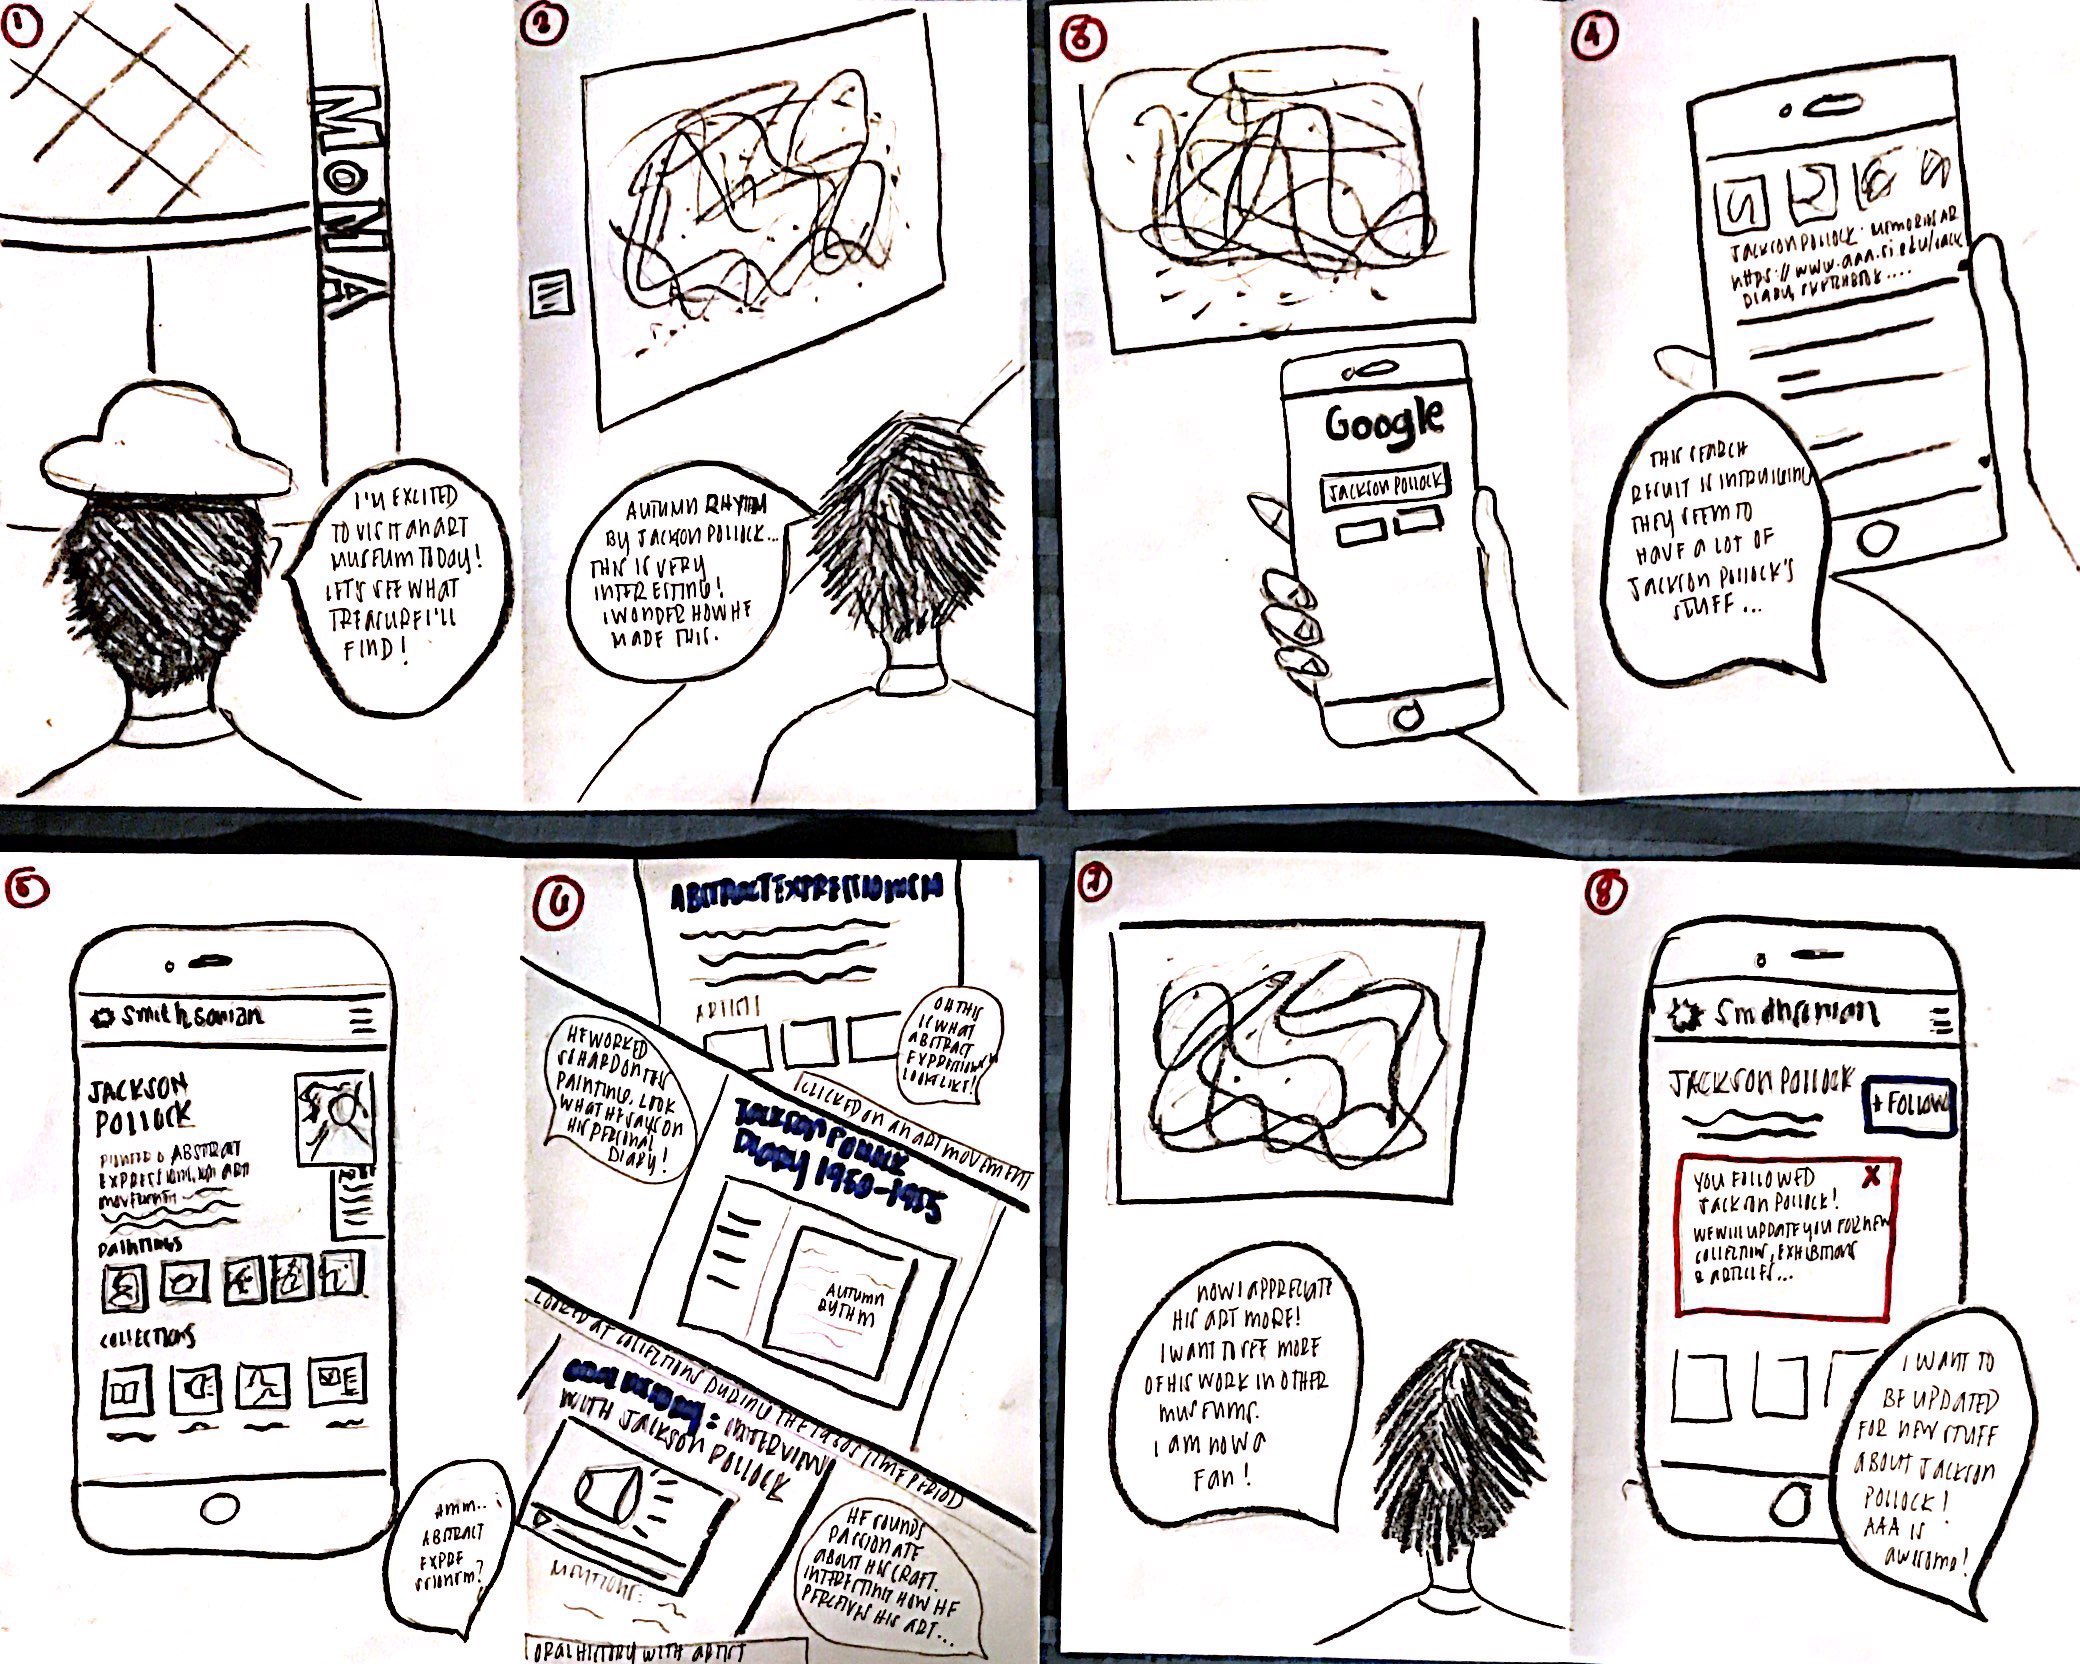 1
MoMA
I'M EXCITED
TO VISIT AN ART
MUSEUM TODAY!
LET'S SEE WHAT
TREASURE I'LL
FIND!
2
AUTUMN RHYTM
BY JACKSON POLLOCK...
THIS IS VERY
INTERESTING!
I WONDER HOW HE
MADE THIS.
3
Google
JACKSON POLLOCK
4
JACKSON POLLOCK
https://www.aaa.si.edu/jack
DIARY, SKETCHBOOK....
THIS SEARCH
RESULT IS INTRUIGING
THEY SEEM TO
HAVE A LOT OF
JACKSON POLLOCK'S
STUFF...
5
Smithsonian
JACKSON
POLLOCK
ABSTRACT
EXPRESSIONISM ART
MOVEMENT
PAINTINGS
COLLECTIONS
AMM...
ABSTRACT
EXPRE
SSIONISM?
6
ABSTRACT EXPRESSIONISM
ARTIST
OH THIS
IS WHAT
ABSTRACT
EXPRESSIONISM
LOOKS LIKE!
CLICKED ON AN ART MOVEMENT
HE WORKED
SO HARD ON THIS
PAINTING. LOOK
WHAT HE SAYS ON
HIS PERSONAL
DIARY!
JACKSON POLLOCK
DIARY 1950-1955
AUTUMN
RYTHM
LOOKED AT COLLECTIONS DURING THE 1950S TIME PERIOD
ORAL HISTORY: INTERVIEW
WITH JACKSON POLLOCK
MENTIONS:
HE SOUNDS
PASSIONATE
ABOUT HIS CRAFT.
INTERESTING HOW HE
PERCEIVES HIS ART...
ORAL HISTORY WITH ARTIST
7
NOW I APPRECIATE
HIS ART MORE!
I WANT TO SEE MORE
OF HIS WORK IN OTHER
MUSEUMS.
I AM NOW A
FAN!
8
Smithsonian
JACKSON POLLOCK
+ FOLLOW
YOU FOLLOWED
JACKSON POLLOCK!
X
WE WILL UPDATE YOU FOR NEW
COLLECTION, EXHIBITIONS
& ARTICLES...
I WANT TO
BE UPDATED
FOR NEW STUFF
ABOUT JACKSON
POLLOCK!
AAA IS
AWESOME!